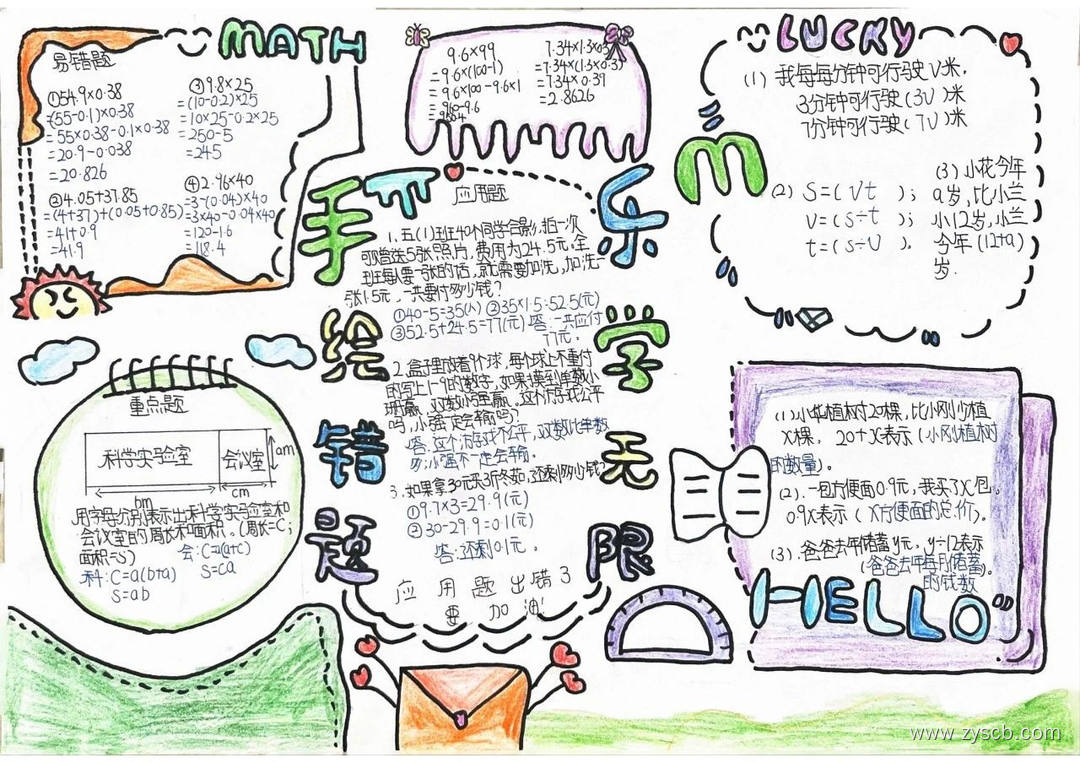 MATH
易错题
①54.9×0.38
=(55-0.1)×0.38
=55×0.38-0.1×0.38
=20.9-0.038
=20.826
②4.05+37.85
=(4+37)+(0.05+0.85)
=41+0.9
=41.9
③9.8×25
=(10-0.2)×25
=10×25-0.2×25
=250-5
=245
④2.96×40
=3-(0.04)×40
=3×40-0.04×40
=120-1.6
=118.4
9.6×99
=9.6×(100-1)
=9.6×100-9.6×1
=960-9.6
7.34×1.3×0.3
=7.34×(1.3×0.3)
=7.34×0.39
=2.8626
LUCKY
(1) 我每每分钟可行驶V米,
3分钟可行驶(3V)米
7分钟可行驶(7V)米
(2) S=(Vt);
V=(S÷t);
t=(S÷V).
(3)小花今年
a岁,比小兰
小12岁,小兰
今年(12+a)
岁.
手绘错题
乐学无限
应用题
1.五(1)班40个同学合影,拍一次
可赠送5张照片,费用为24.5元,全
班每人要一张的话,就需要加洗,加洗一
张1.5元,一共要付多少钱?
①40-5=35(人) ②35×1.5=52.5(元)
③52.5+24.5=77(元) 答:一共应付
77元.
2.盒子里放着9个球,每个球上不重付
的写上1-9的数字,如果摸到单数小
赢,双数小强赢,这个游戏公平
吗,小强一定会输吗?
答:这个游戏不公平,双数比单数
少,小强不一定会输.
3.如果拿30元买3斤冬茹,还剩多少钱?
①9.7×3=29.9(元)
②30-29.9=0.1(元)
答:还剩0.1元.
应用题出错3
要加油!
重点题
科学实验室 会议室 am
bm cm
用字母分别表示出科学实验室和
会议室的周长和面积。(周长=C;
面积=S) 会:C=a(a+c)
科:C=a(b+a) S=ca
S=ab
(1)小华植树20棵,比小刚少植
X棵, 20+X表示(小刚植树
的数量)。
(2).一包方便面0.9元,我买了X包。
0.9X表示(X方便面的总价)。
(3).爸爸去年储蓄y元,y÷12表示
(爸爸去年每月储蓄
的钱数)。
HELLO
www.zyscb.com